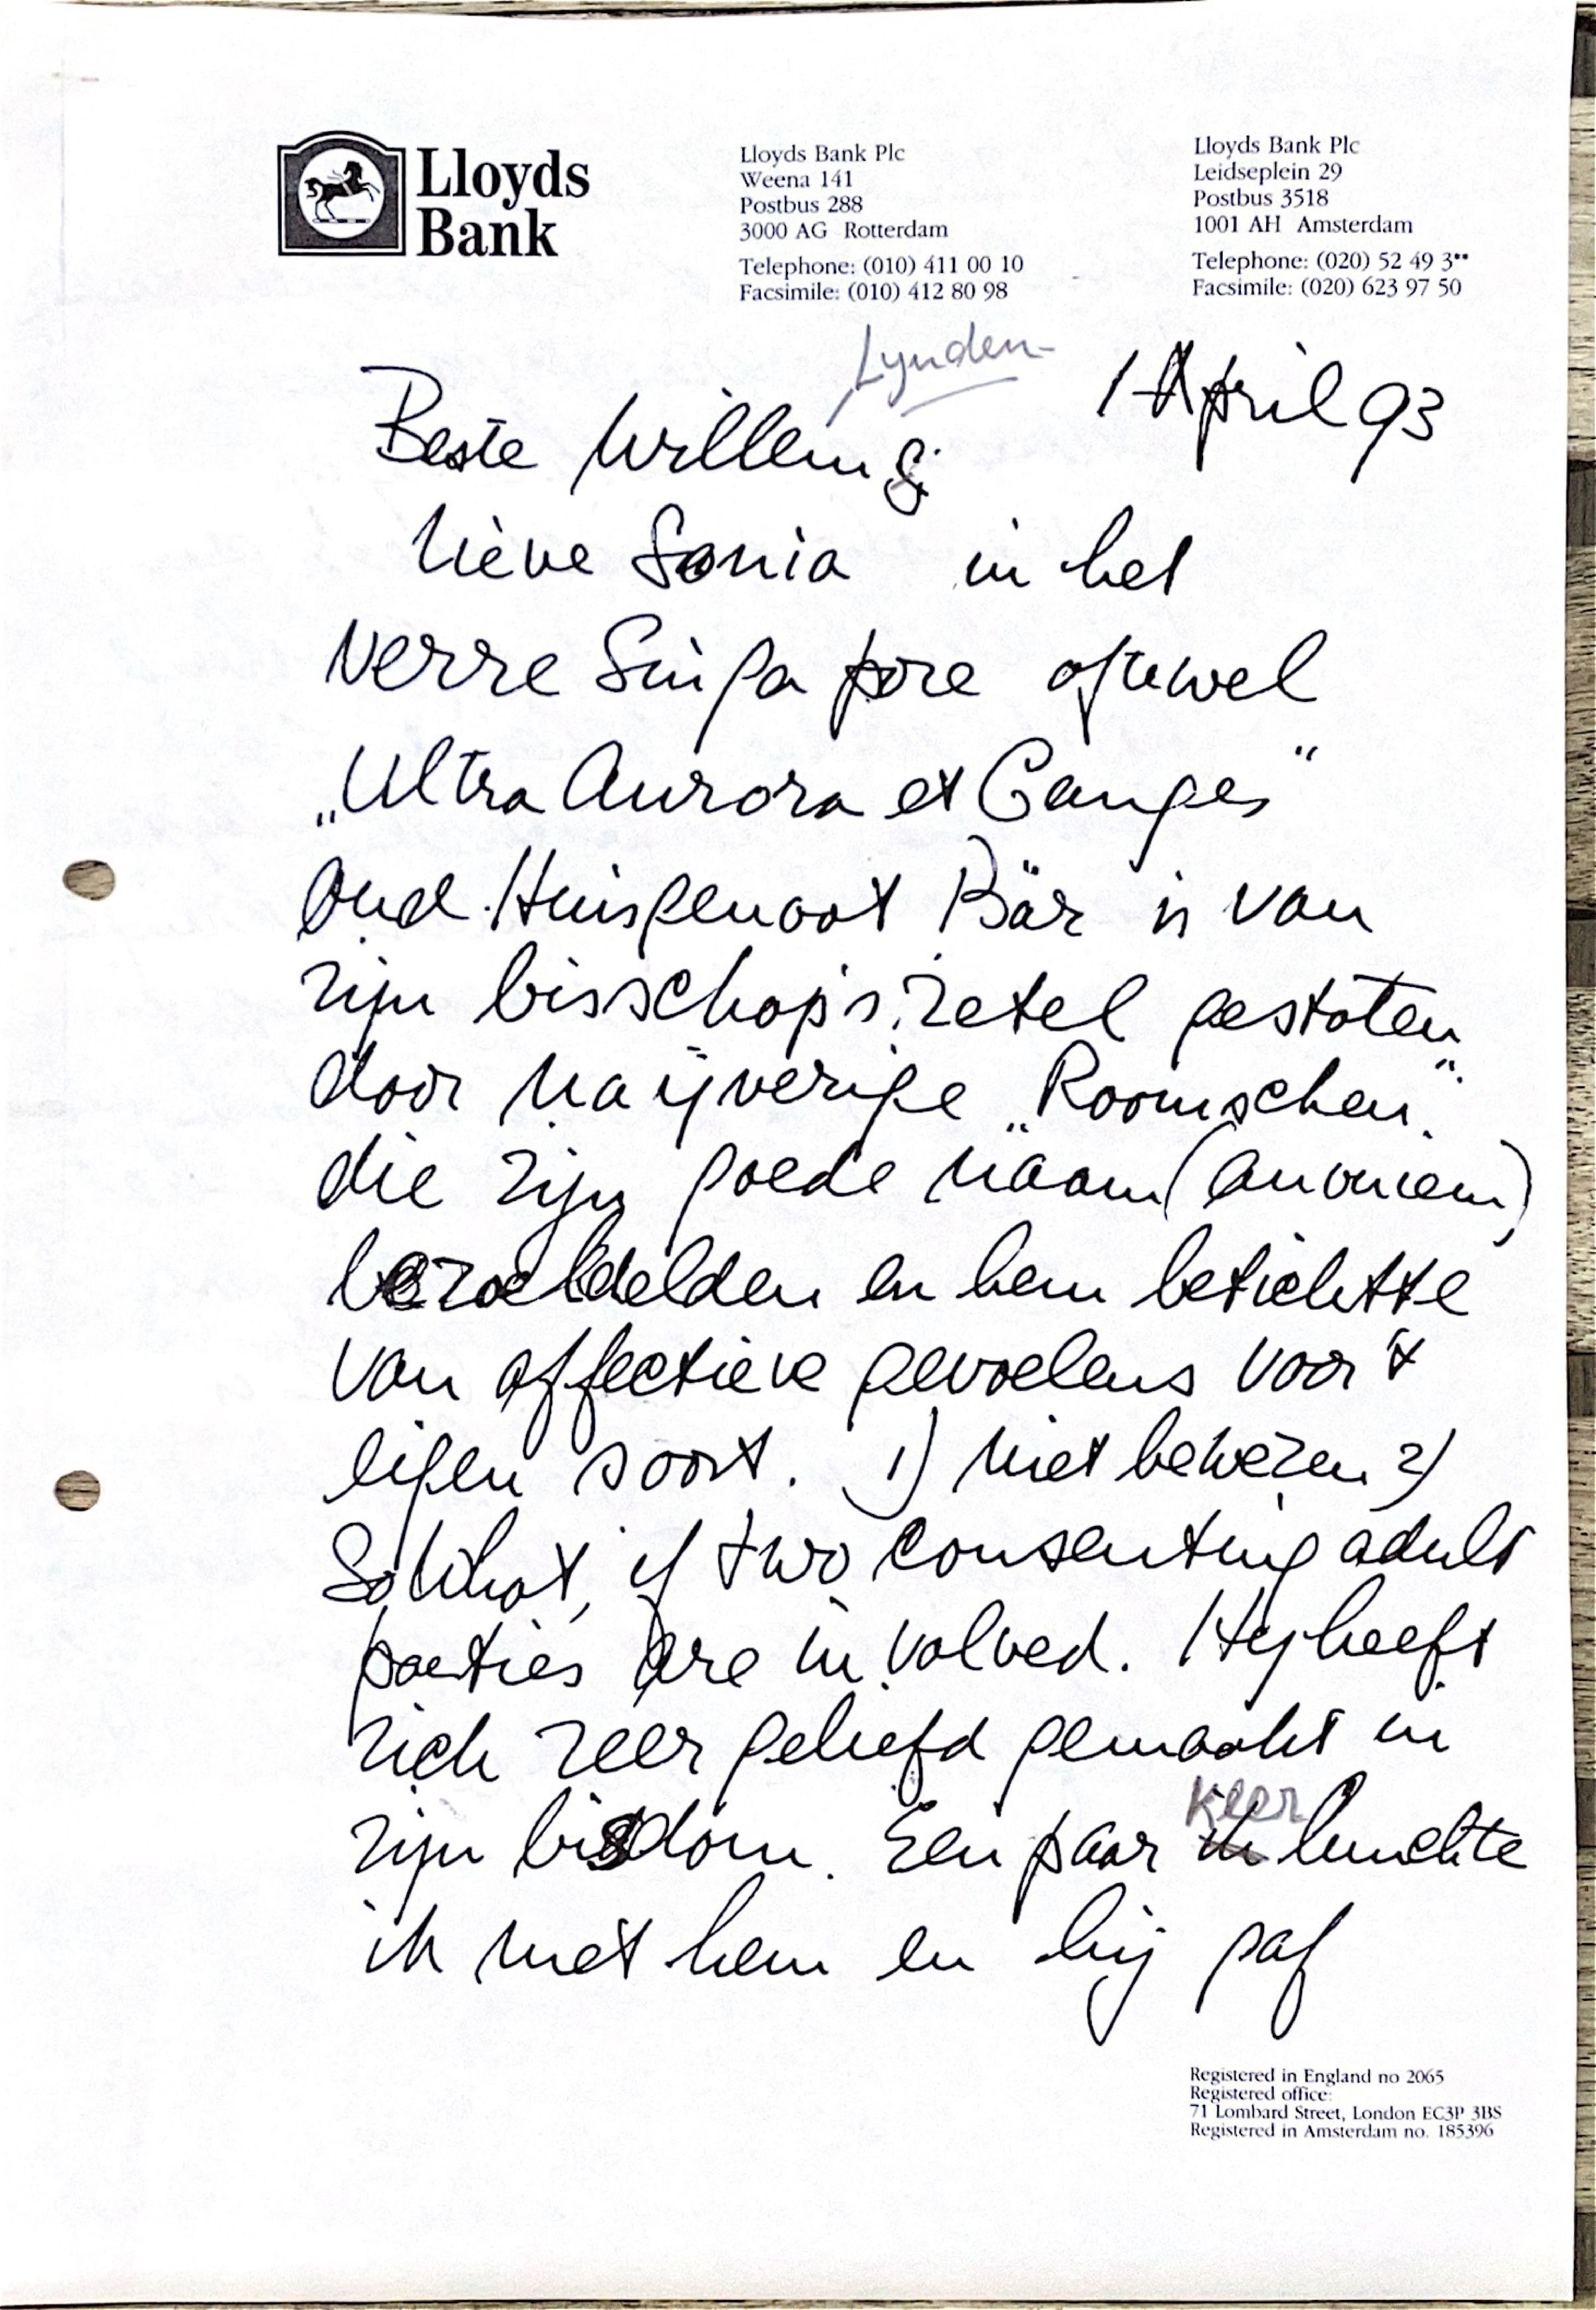 Lloyds
Bank
Lloyds Bank Plc
Weena 141
Postbus 288
3000 AG Rotterdam
Telephone: (010) 411 00 10
Facsimile: (010) 412 80 98
Lloyds Bank Plc
Leidseplein 29
Postbus 3518
1001 AH Amsterdam
Telephone: (020) 52 49 3**
Facsimile: (020) 623 97 50
Lynden
1 April 93
Beste Willem &
lieve Sonia in het
verre Singapore oftewel
„Ultra Aurora et Ganges"
Oud Huisgenoot Bär is van
zijn bisschop's zetel gestoten
door naijverige „Roomschen"
die zijn goede naam (anoniem)
bezoeldelden en hem betichtte
van affectieve gevoelens voor 't
eigen soort. 1) niet bewezen 2)
So what, if two consenting adult
parties are involved. Hij heeft
zich zeer geliefd gemaakt in
zijn bisdom. Een paar keer lunchte
ik met hem en hij gaf
Registered in England no 2065
Registered office:
71 Lombard Street, London EC3P 3BS
Registered in Amsterdam no. 185396